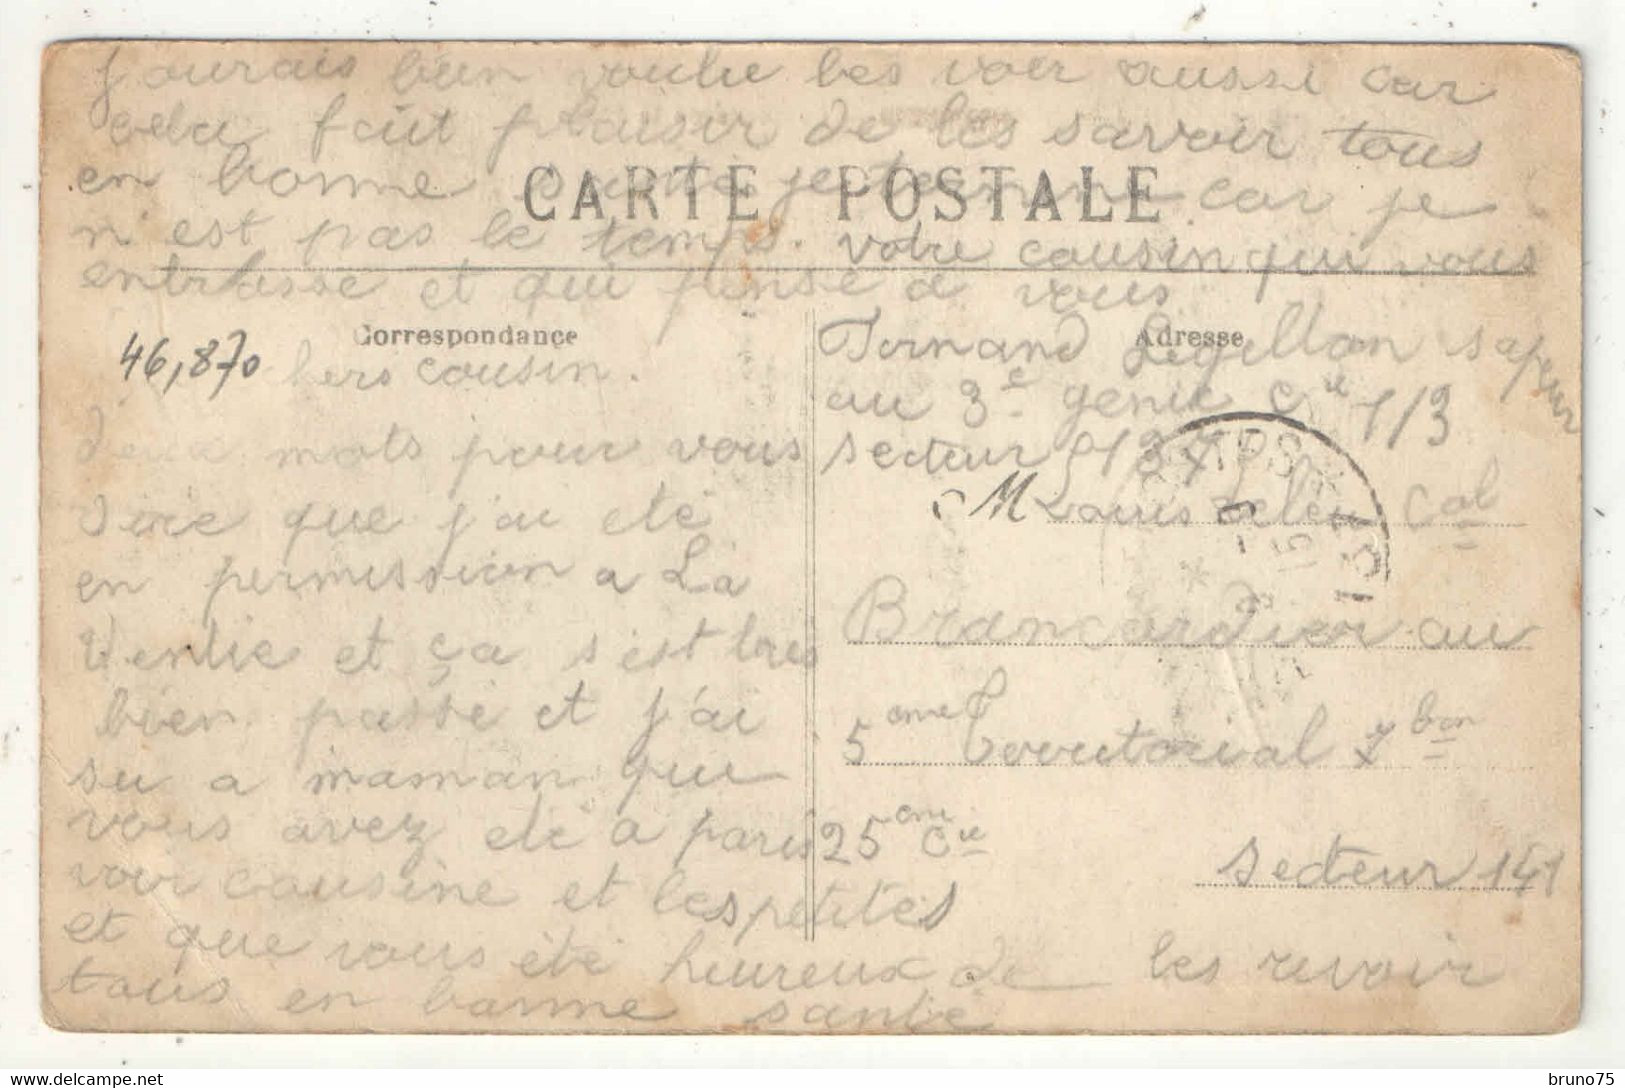 j'ourais bien voulu les voir aussi car
cela fait plaisir de les savoir tous
en bonne santé je termine car je
n'est pas le temps. votre cousin qui vous
entrasse et qui pense a vous
CARTE POSTALE
Correspondance
46,870
hers cousin.
deux mots pour vous
dire que j'ai eté
en permission a La
Ventie et ça s'est tres
bien passé et j'ai
su a maman que
vous avez eté a paris
voir cousine et les petites
et que vous été heureux de les revoir
tous en bonne santé
Adresse
Fernand Legillon sapeur
au 3e genie Cie 7/3
secteur 137
M Louis Cal
Brancardier au
5eme Territorial bon
25eme Cie
secteur 141
bruno75